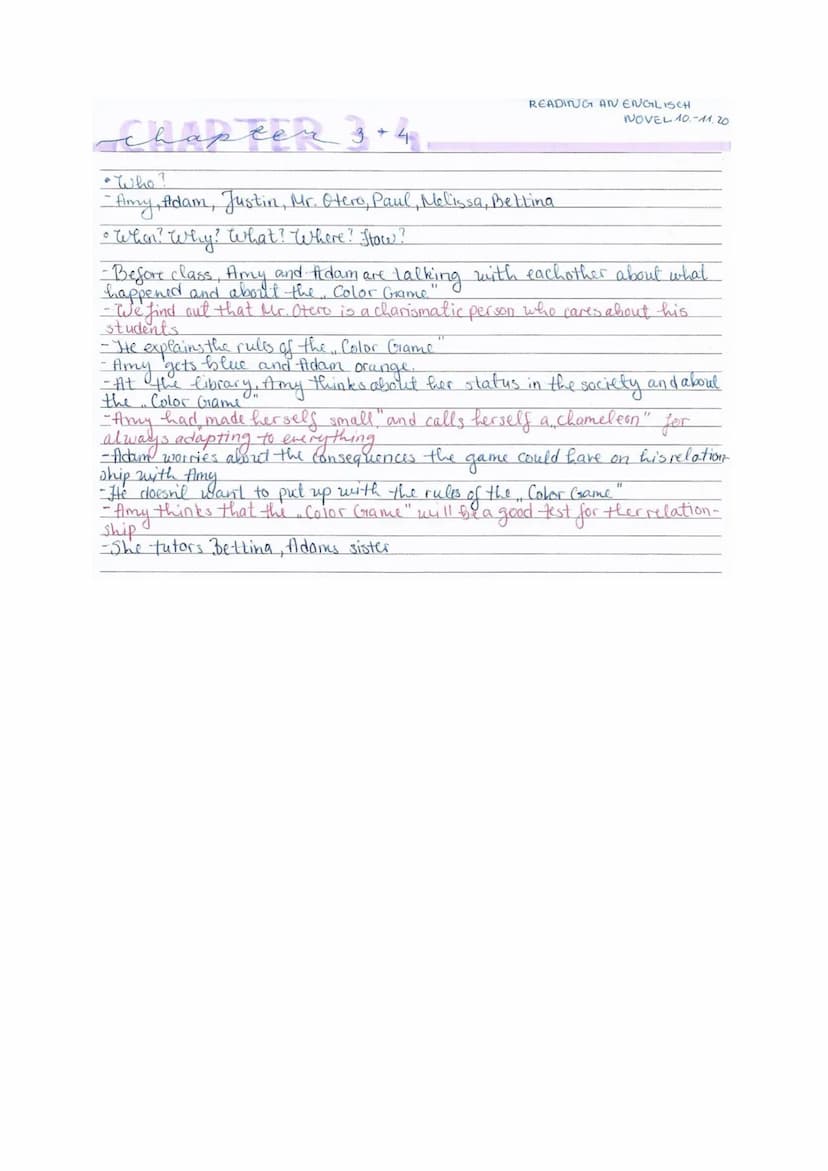 READING AN ENGLISCH
NOVEL 10.-11.20
CHAPTER 3 + 4
chapter 3 + 4
• Who?
- Amy, Adam, Justin, Mr. Otero, Paul, Melissa, Bettina
• When? Why? What? Where? How?
- Before class, Amy and Adam are talking with eachother about what
happened and about the „Color Game"
- We find out that Mr. Otero is a charismatic person who cares about his
students
- He explains the rules of the „Color Game"
- Amy gets blue and Adam orange.
- At the library, Amy thinks about her status in the society and about
the „Color Game"
- Amy had made herself small" and calls herself a „chameleon" for
always adapting to everything
- Adam worries about the consequences the game could have on his relation-
ship with Amy
- He doesn't want to put up with the rules of the „Color Game"
- Amy thinks that the „Color Game" will be a good test for ther relation-
ship
- She tutors Bettina, Adams sister